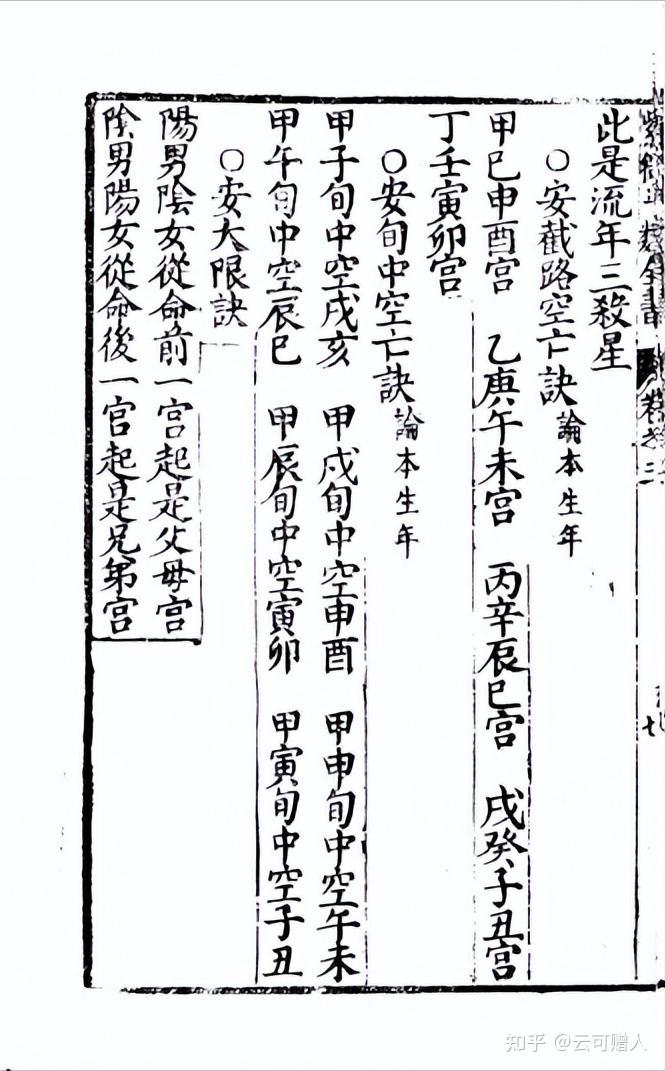 此是流年三殺星
○安截路空亡訣論本生年
甲巳申酉宮　乙庚午未宮　丙辛辰巳宮　戌癸子丑宮
丁壬寅卯宮
○安旬中空亡訣論本生年
甲子旬中空戌亥　甲戌旬中空申酉　甲申旬中空午未
甲午旬中空辰巳　甲辰旬中空寅卯　甲寅旬中空子丑
○安大限訣
陽男陰女從命前一宮起是父母宮
陰男陽女從命後一宮起是兄弟宮
知乎 @云可赠人